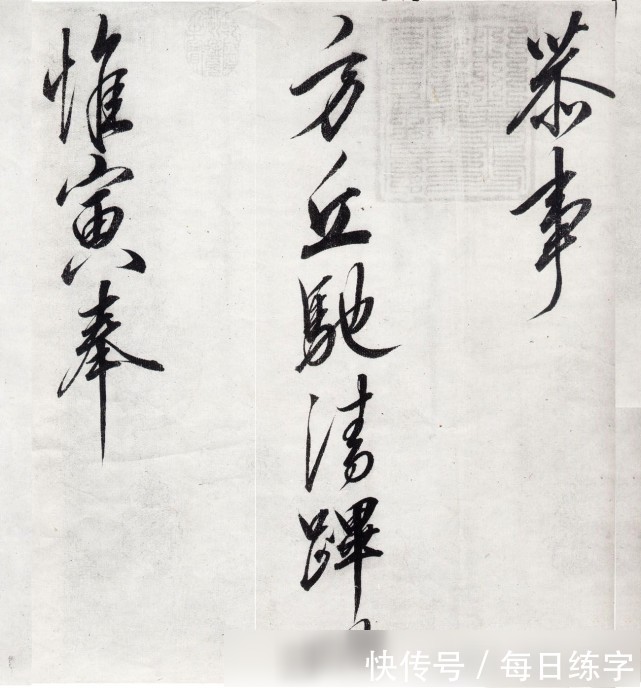 恭事
方丘馳清蹕
惟寅奉
快传号 / 每日练字